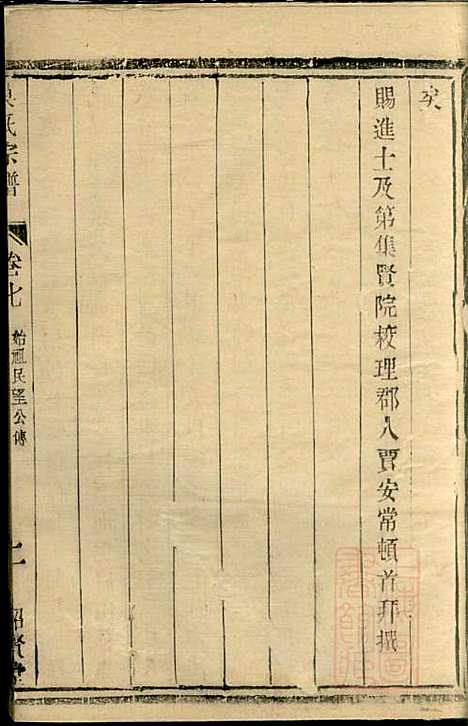 矣
賜進士及第集賢院校理郡人賈安常頓首拜撰
氏宗譜
卷七
始祖民望公傳
二
紹賢堂